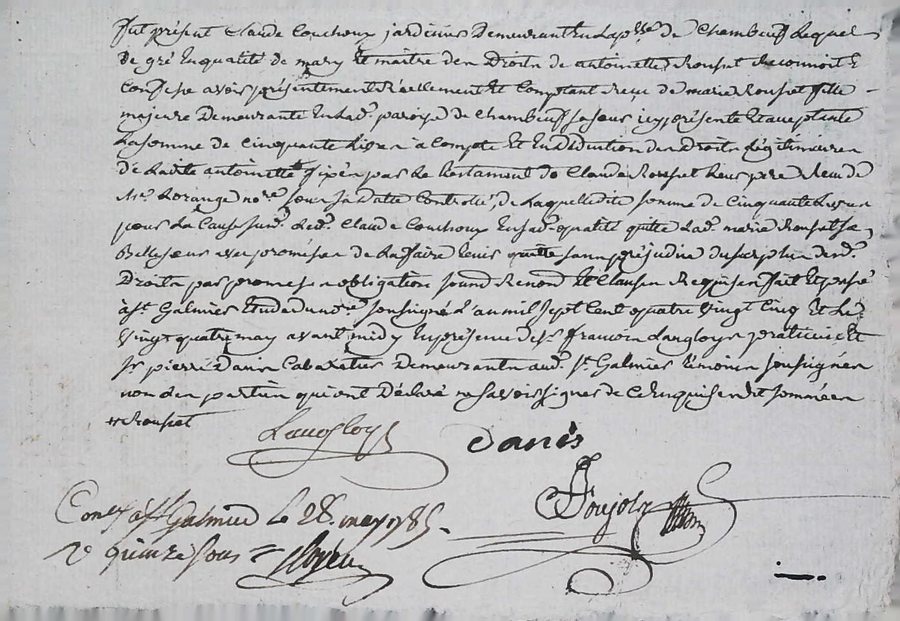 fut présent Claude Couchoux jardinier Demeurant En La psse de Chambeuf Lequel
de gré En qualité de mary Et maitre des Droits de antoinette Rousset Reconnoit Et
Confesse avoir présentement Réellement Et Comptant Reçu de marie Rousset fille
majeure Demeurante En Lad. paroisse de Chambeuf sa sœur icy présente Et acceptante
La somme de Cinquante Livres à Compte Et En diduction des Droits Légitimaires
de Ladite antoinette fixés par Le testament de Claude Rousset Leur pere Reçu de
Me Lorange nore sous sa datte Controllé, de Laquelle dite somme de Cinquante Livres
pour La Cause susd. Led. Claude Couchoux En sad. qualité quitte Lad. marie Rousset sa
Belle sœur avec promesse de La faire tenir quitte sans préjudice du surplus desd.
Droits par promesse obligation soumd Renond Et Clauses Requises fait Et passé
à St. Galmier Etude du nore. soussigné L'an mil sept Cent quatre vingt Cinq Et Le
vingt quatre may avant midy En présence de Sr. francois Langloys praticien Et
Sr. pierre Danis Cabaretier Demeurants aud. St. Galmier témoins soussignés
non des parties qui ont Déclaré ne savoir signer de Ce Enquises et sommées
Rousset
Langloys
Danis
Poujolz
Conte à St Galmier le 28. may 1785.
R quinze sous